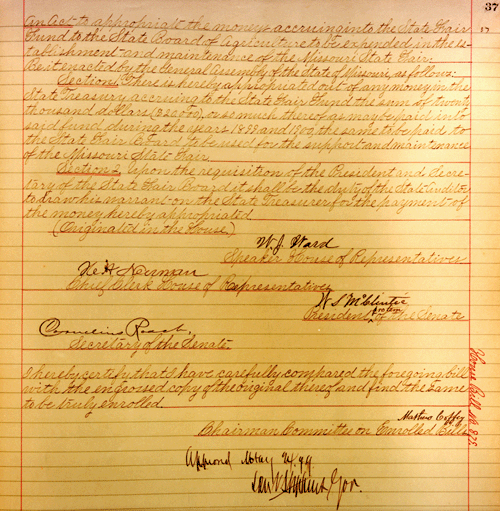 37
An Act to appropriate the money accruing into the State Fair
Fund to the State Board of Agriculture to be expended in the es-
tablishment and maintenance of the Missouri State Fair.
Be it enacted by the General Assembly of the State of Missouri, as follows:
Section 1. There is hereby appropriated out of any money in the
State Treasury accruing to the State Fair Fund the sum of twenty
thousand dollars ($20,000), or so much thereof as may be paid into
said fund during the years 1899 and 1900, the same to be paid to
the State Fair Board to be used for the support and maintenance
of the Missouri State Fair.
Section 2. Upon the requisition of the President and Secre-
tary of the State Fair Board it shall be the duty of the State Auditor
to draw his warrant on the State Treasurer for the payment of
the money hereby appropriated
(Originated in the House.)
W. J. Ward
Speaker House of Representatives
Chief Clerk House of Representatives
W S McClintic
President pro tem of the Senate
Cornelius Roach
Secretary of the Senate
I hereby certify that I have carefully compared the foregoing bill
with the engrossed copy of the original thereof and find the same
to be truly enrolled.
Chairman Committee on Enrolled Bills
House Bill No. 875.
Approved May 24, 99.
Lon V Stephens Gov.